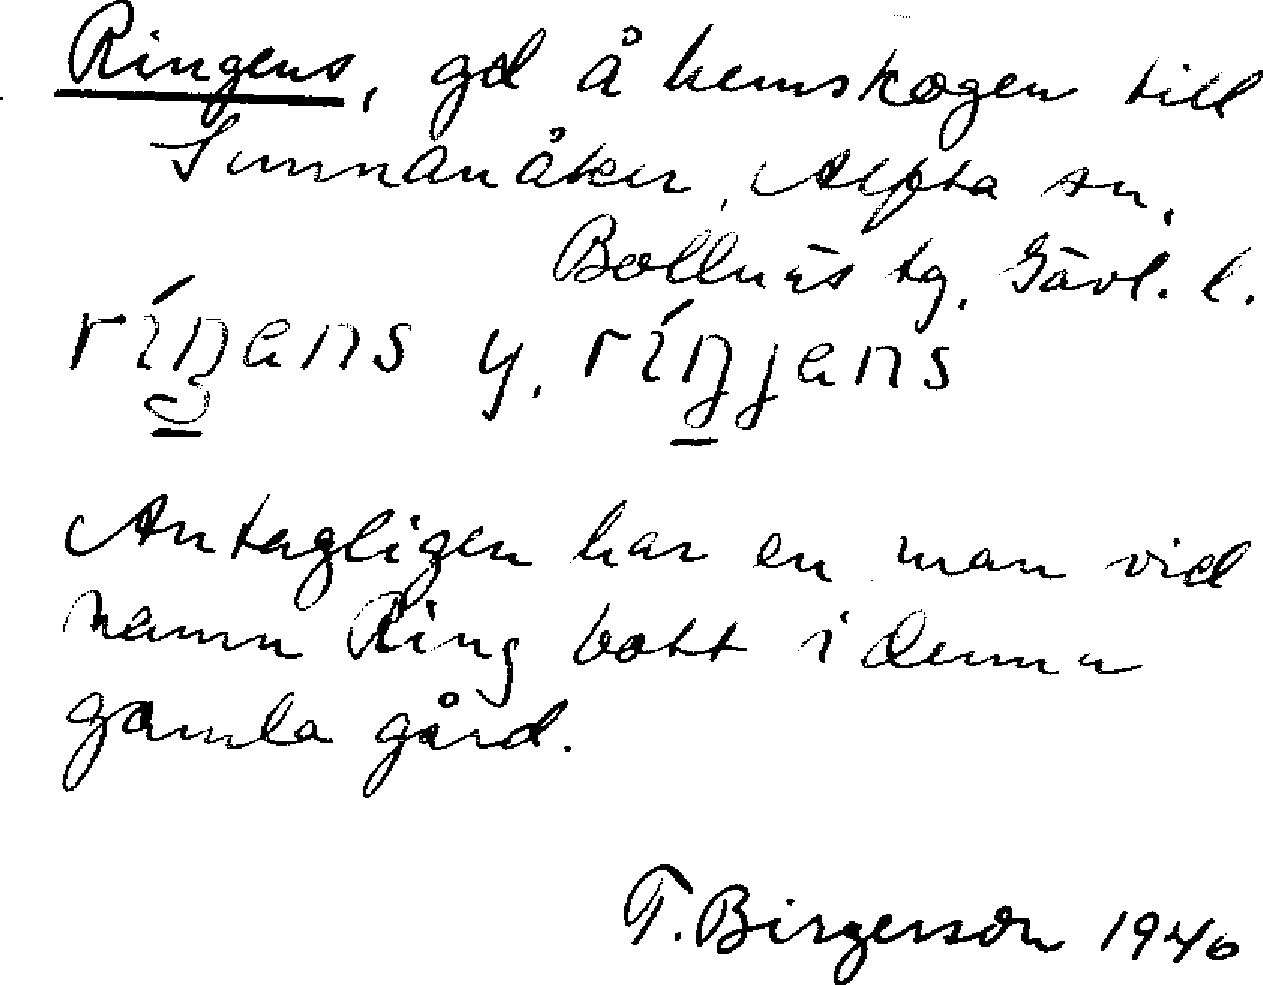 Ringens, gd å hemskogen till
Sunnanåker, Alfta sn,
Bollnäs tg. Gävl. l.
ríŋans y. ríŋjans
Antagligen har en man vid
namn Ring bott i denna
gamla gård.
T. Birgersson 1940